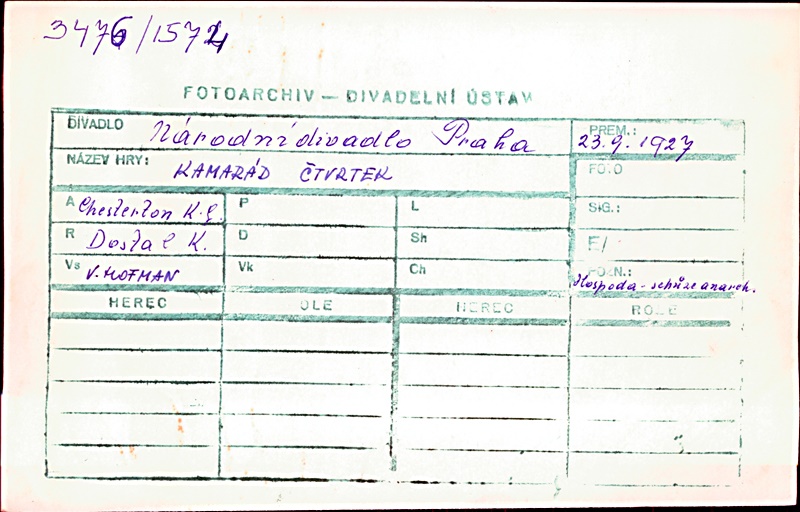 3476/1572
FOTOARCHIV — DIVADELNÍ ÚSTAV
DIVADLO Národní divadlo Praha PREM.: 23.9.1927
NÁZEV HRY: KAMARÁD ČTVRTEK FOTO
A Chesterton K.G. P L SIG.:
R Dostal K. D Sh E/
Vs V. HOFMAN Vk Ch POZN.: Hospoda - schůze anarch.
HEREC OLE HEREC ROLE